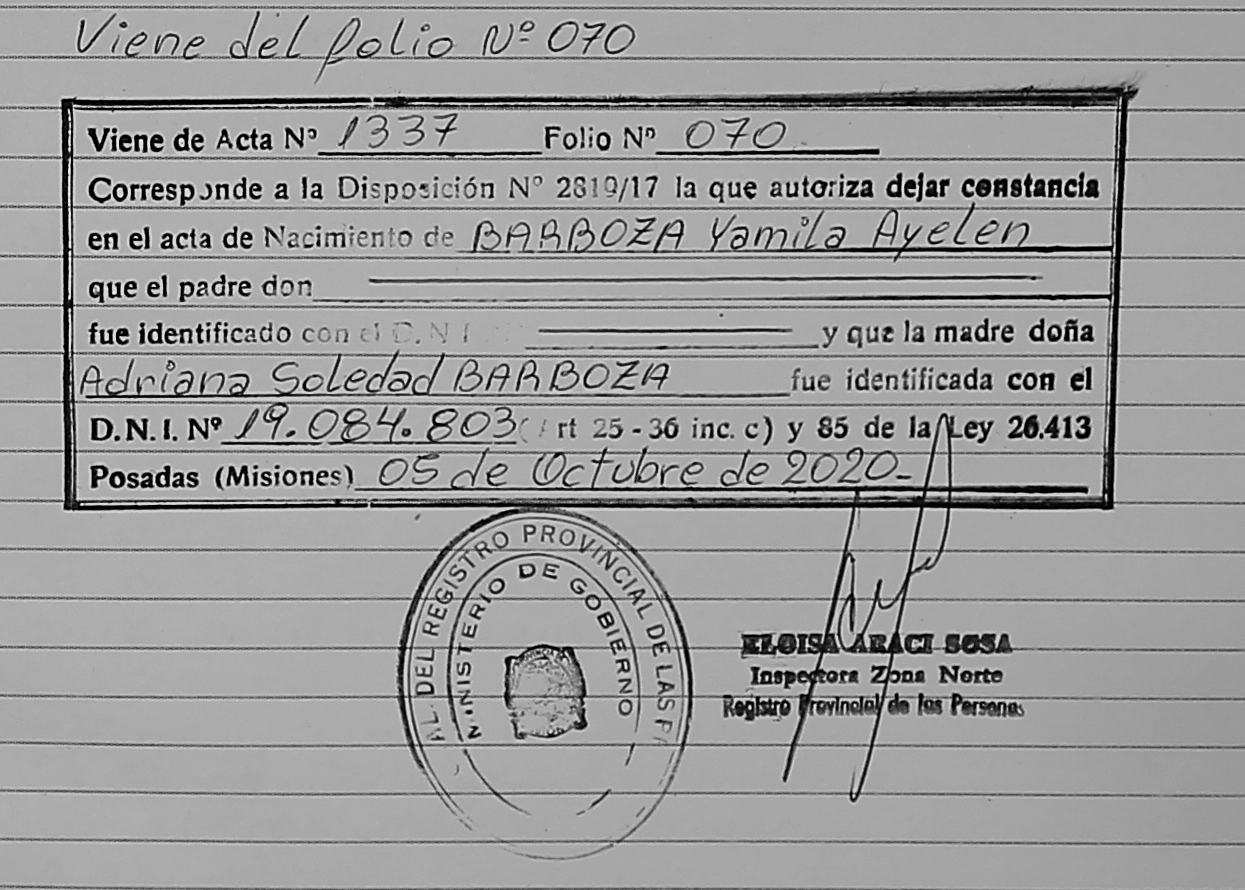 Viene del folio Nº 070
Viene de Acta Nº 1337 Folio Nº 070
Corresponde a la Disposición Nº 2819/17 la que autoriza dejar constancia
en el acta de Nacimiento de BARBOZA Yamila Ayelen
que el padre don
fue identificado con el D.N.I. y que la madre doña
Adriana Soledad BARBOZA fue identificada con el
D.N.I. Nº 19.084.803 rt 25 - 36 inc. c) y 85 de la Ley 26.413
Posadas (Misiones) 05 de Octubre de 2020-
AL. DEL REGISTRO PROVINCIAL DE LAS
MINISTERIO DE GOBIERNO
ELOISA ARACI SOSA
Inspectora Zona Norte
Registro Provincial de las Personas